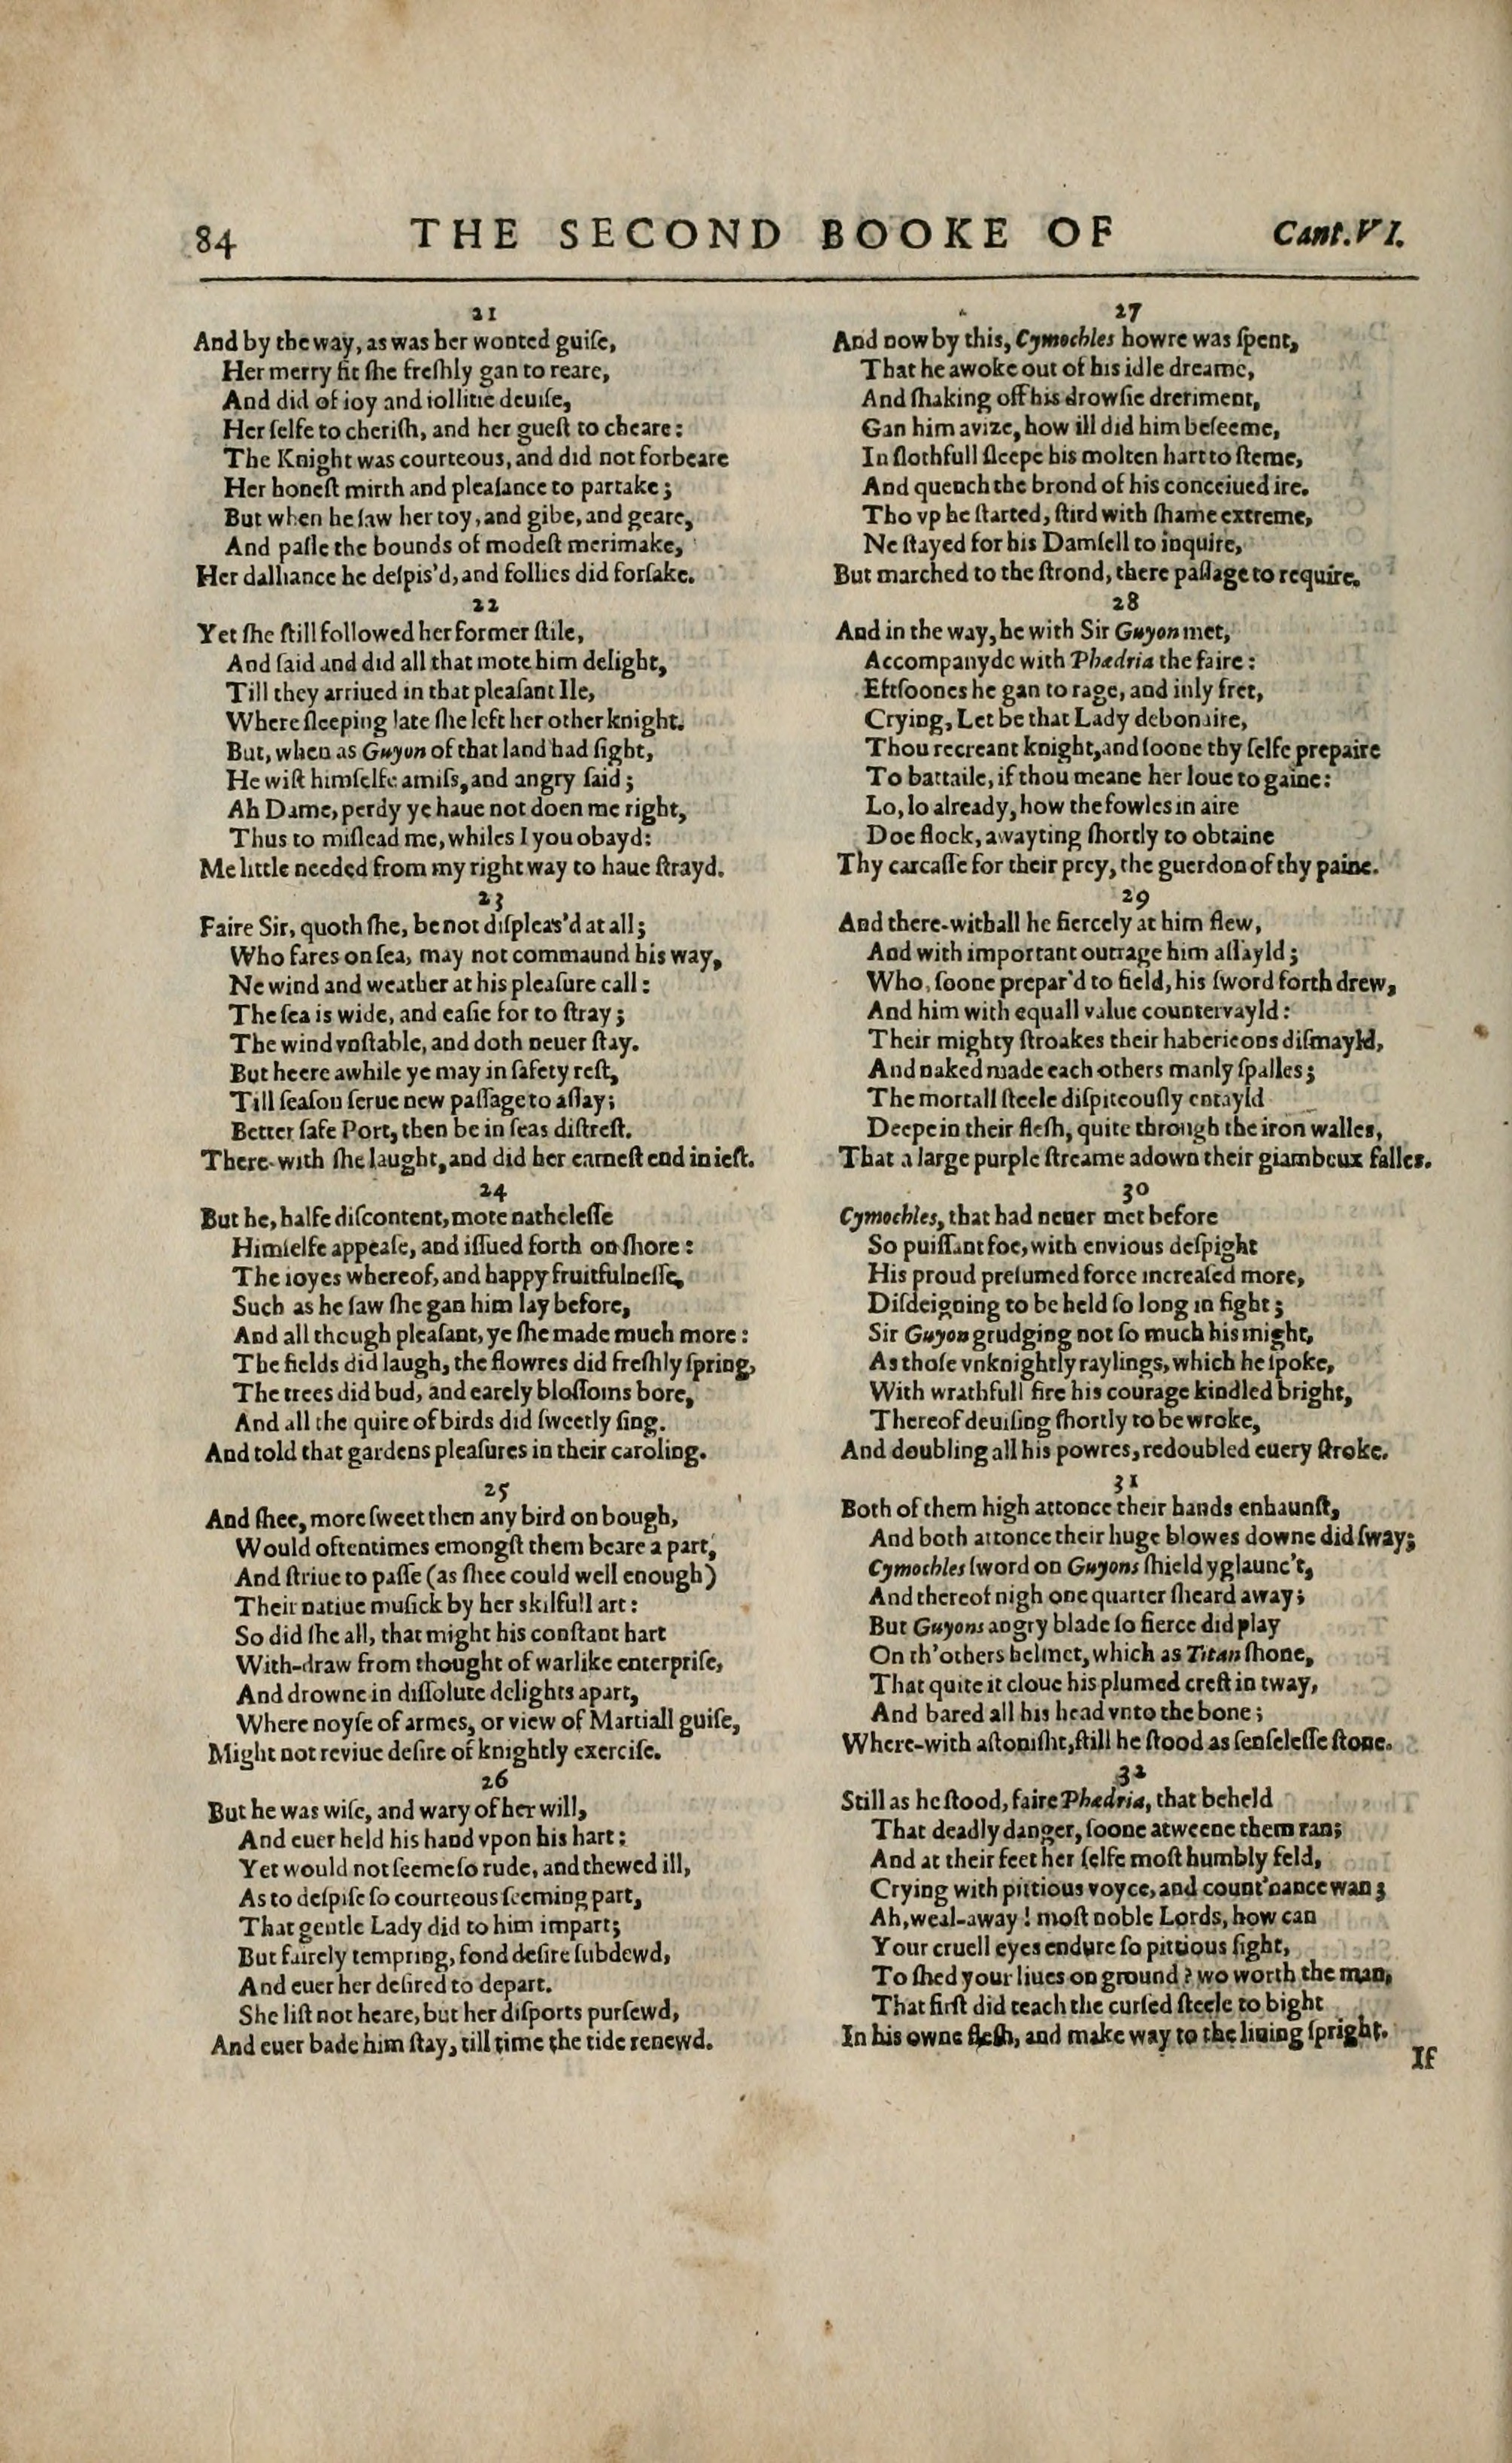 84 THE SECOND BOOKE OF Cant. VI.
21
And by the way, as was her wonted guiſe,
Her merry fit ſhe freſhly gan to reare,
And did of ioy and iollitie deuiſe,
Her ſelfe to cheriſh, and her gueſt to cheare:
The Knight was courteous, and did not forbeare
Her honeſt mirth and pleaſance to partake;
But when he ſaw her toy, and gibe, and geare,
And paſſe the bounds of modeſt merimake,
Her dalliance he deſpis'd, and follies did forſake.
22
Yet ſhe ſtill followed her former ſtile,
And ſaid and did all that mote him delight,
Till they arriued in that pleaſant Ile,
Where ſleeping late ſhe left her other knight.
But, when as Guyon of that land had ſight,
He wiſt himſelfe amiſs, and angry ſaid;
Ah Dame, perdy ye haue not doen me right,
Thus to miſlead me, whiles I you obayd:
Me little needed from my right way to haue ſtrayd.
23
Faire Sir, quoth ſhe, be not diſpleas'd at all;
Who fares on ſea, may not commaund his way,
Ne wind and weather at his pleaſure call:
The ſea is wide, and eaſie for to ſtray;
The wind vnſtable, and doth neuer ſtay.
But heere awhile ye may in ſafety reſt,
Till ſeaſon ſerue new paſſage to aſſay;
Better ſafe Port, then be in ſeas diſtreſt.
There-with ſhe laught, and did her earneſt end in ieſt.
24
But he, halfe diſcontent, mote natheleſſe
Himſelfe appeaſe, and iſſued forth on ſhore:
The ioyes whereof, and happy fruitfulneſſe,
Such as he ſaw ſhe gan him lay before,
And all though pleaſant, ye ſhe made much more:
The fields did laugh, the flowres did freſhly ſpring,
The trees did bud, and earely bloſſoms bore,
And all the quire of birds did ſweetly ſing.
And told that gardens pleaſures in their caroling.
25
And ſhee, more ſweet then any bird on bough,
Would oftentimes emongſt them beare a part,
And ſtriue to paſſe (as ſhee could well enough)
Their natiue muſick by her skilfull art:
So did ſhe all, that might his conſtant hart
With-draw from thought of warlike enterpriſe,
And drowne in diſſolute delights apart,
Where noyſe of armes, or view of Martiall guiſe,
Might not reviue deſire of knightly exerciſe.
26
But he was wiſe, and wary of her will,
And euer held his hand vpon his hart:
Yet would not ſeeme ſo rude, and thewed ill,
As to deſpiſe ſo courteous ſeeming part,
That gentle Lady did to him impart;
But fairely tempring, fond deſire ſubdewd,
And euer her deſired to depart.
She liſt not heare, but her diſports purſewd,
And euer bade him ſtay, till time the tide renewd.
27
And now by this, Cymochles howre was ſpent,
That he awoke out of his idle dreame,
And ſhaking off his drowſie dreriment,
Gan him avize, how ill did him beſeeme,
In ſlothfull ſleepe his molten hart to ſteme,
And quench the brond of his conceiued ire.
Tho vp he ſtarted, ſtird with ſhame extreme,
Ne ſtayed for his Damſell to inquire,
But marched to the ſtrond, there paſſage to require.
28
And in the way, he with Sir Guyon met,
Accompanyde with Phædria the faire:
Eftſoones he gan to rage, and inly fret,
Crying, Let be that Lady debonaire,
Thou recreant knight, and ſoone thy ſelfe prepaire
To battaile, if thou meane her loue to gaine:
Lo, lo already, how the fowles in aire
Doe flock, awayting ſhortly to obtaine
Thy carcaſſe for their prey, the guerdon of thy paine.
29
And there-withall he fiercely at him flew,
And with important outrage him aſſayld;
Who, ſoone prepar'd to field, his ſword forth drew,
And him with equall value countervayld:
Their mighty ſtroakes their haberieons diſmayld,
And naked made each others manly ſpalles;
The mortall ſteele diſpiteouſly entayld
Deepe in their fleſh, quite through the iron walles,
That a large purple ſtreame adown their giambeux falles.
30
Cymochles, that had neuer met before
So puiſſant foe, with envious deſpight
His proud preſumed force increaſed more,
Diſdeigning to be held ſo long in fight;
Sir Guyon grudging not ſo much his might,
As thoſe vnknightly raylings, which he ſpoke,
With wrathfull fire his courage kindled bright,
Thereof deuiſing ſhortly to be wroke,
And doubling all his powres, redoubled euery ſtroke.
31
Both of them high attonce their hands enhaunſt,
And both attonce their huge blowes downe did ſway;
Cymochles ſword on Guyons ſhield yglaunc't,
And thereof nigh one quarter ſheard away;
But Guyons angry blade ſo fierce did play
On th'others helmet, which as Titan ſhone,
That quite it cloue his plumed creſt in tway,
And bared all his head vnto the bone;
Where-with aſtoniſht, ſtill he ſtood as ſenſeleſſe ſtone.
32
Still as he ſtood, faire Phædria, that beheld
That deadly danger, ſoone atweene them ran;
And at their feet her ſelfe moſt humbly feld,
Crying with pittious voyce, and count'nance wan;
Ah, weal-away! moſt noble Lords, how can
Your cruell eyes endure ſo pittious ſight,
To ſhed your liues on ground? wo worth the man,
That firſt did teach the curſed ſteele to bight
In his owne fleſh, and make way to the liuing ſpright.
If